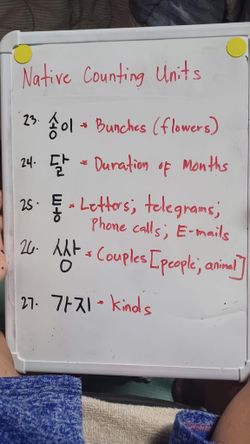 Native Counting Units
23. 송이 * Bunches (flowers)
24. 달 * Duration of Months
25. 통 * Letters; telegrams;
phone calls; E-mails
26. 쌍 * Couples [people; animal]
27. 가지 * kinds